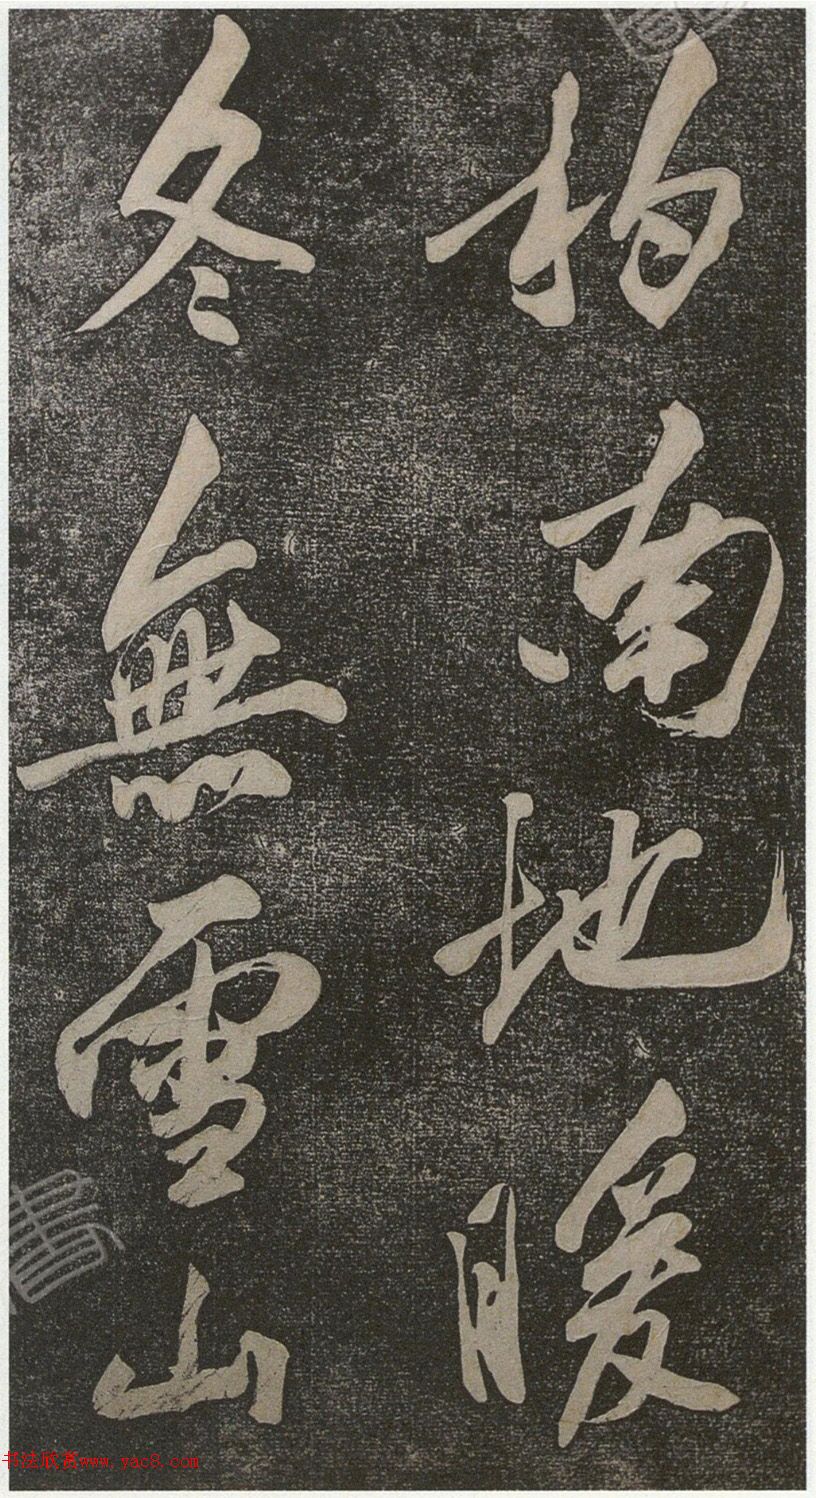 柏南地暖
冬無雪山
書
书法欣赏www.yac8.com